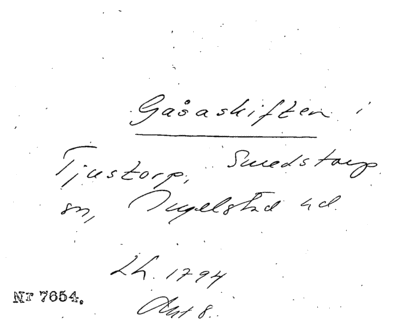 Gasaskiften i
Tjustorp, Smedstorp
sn, Ingelstad hd.
Lh. 1794
Akt 8.
Nr 7654.